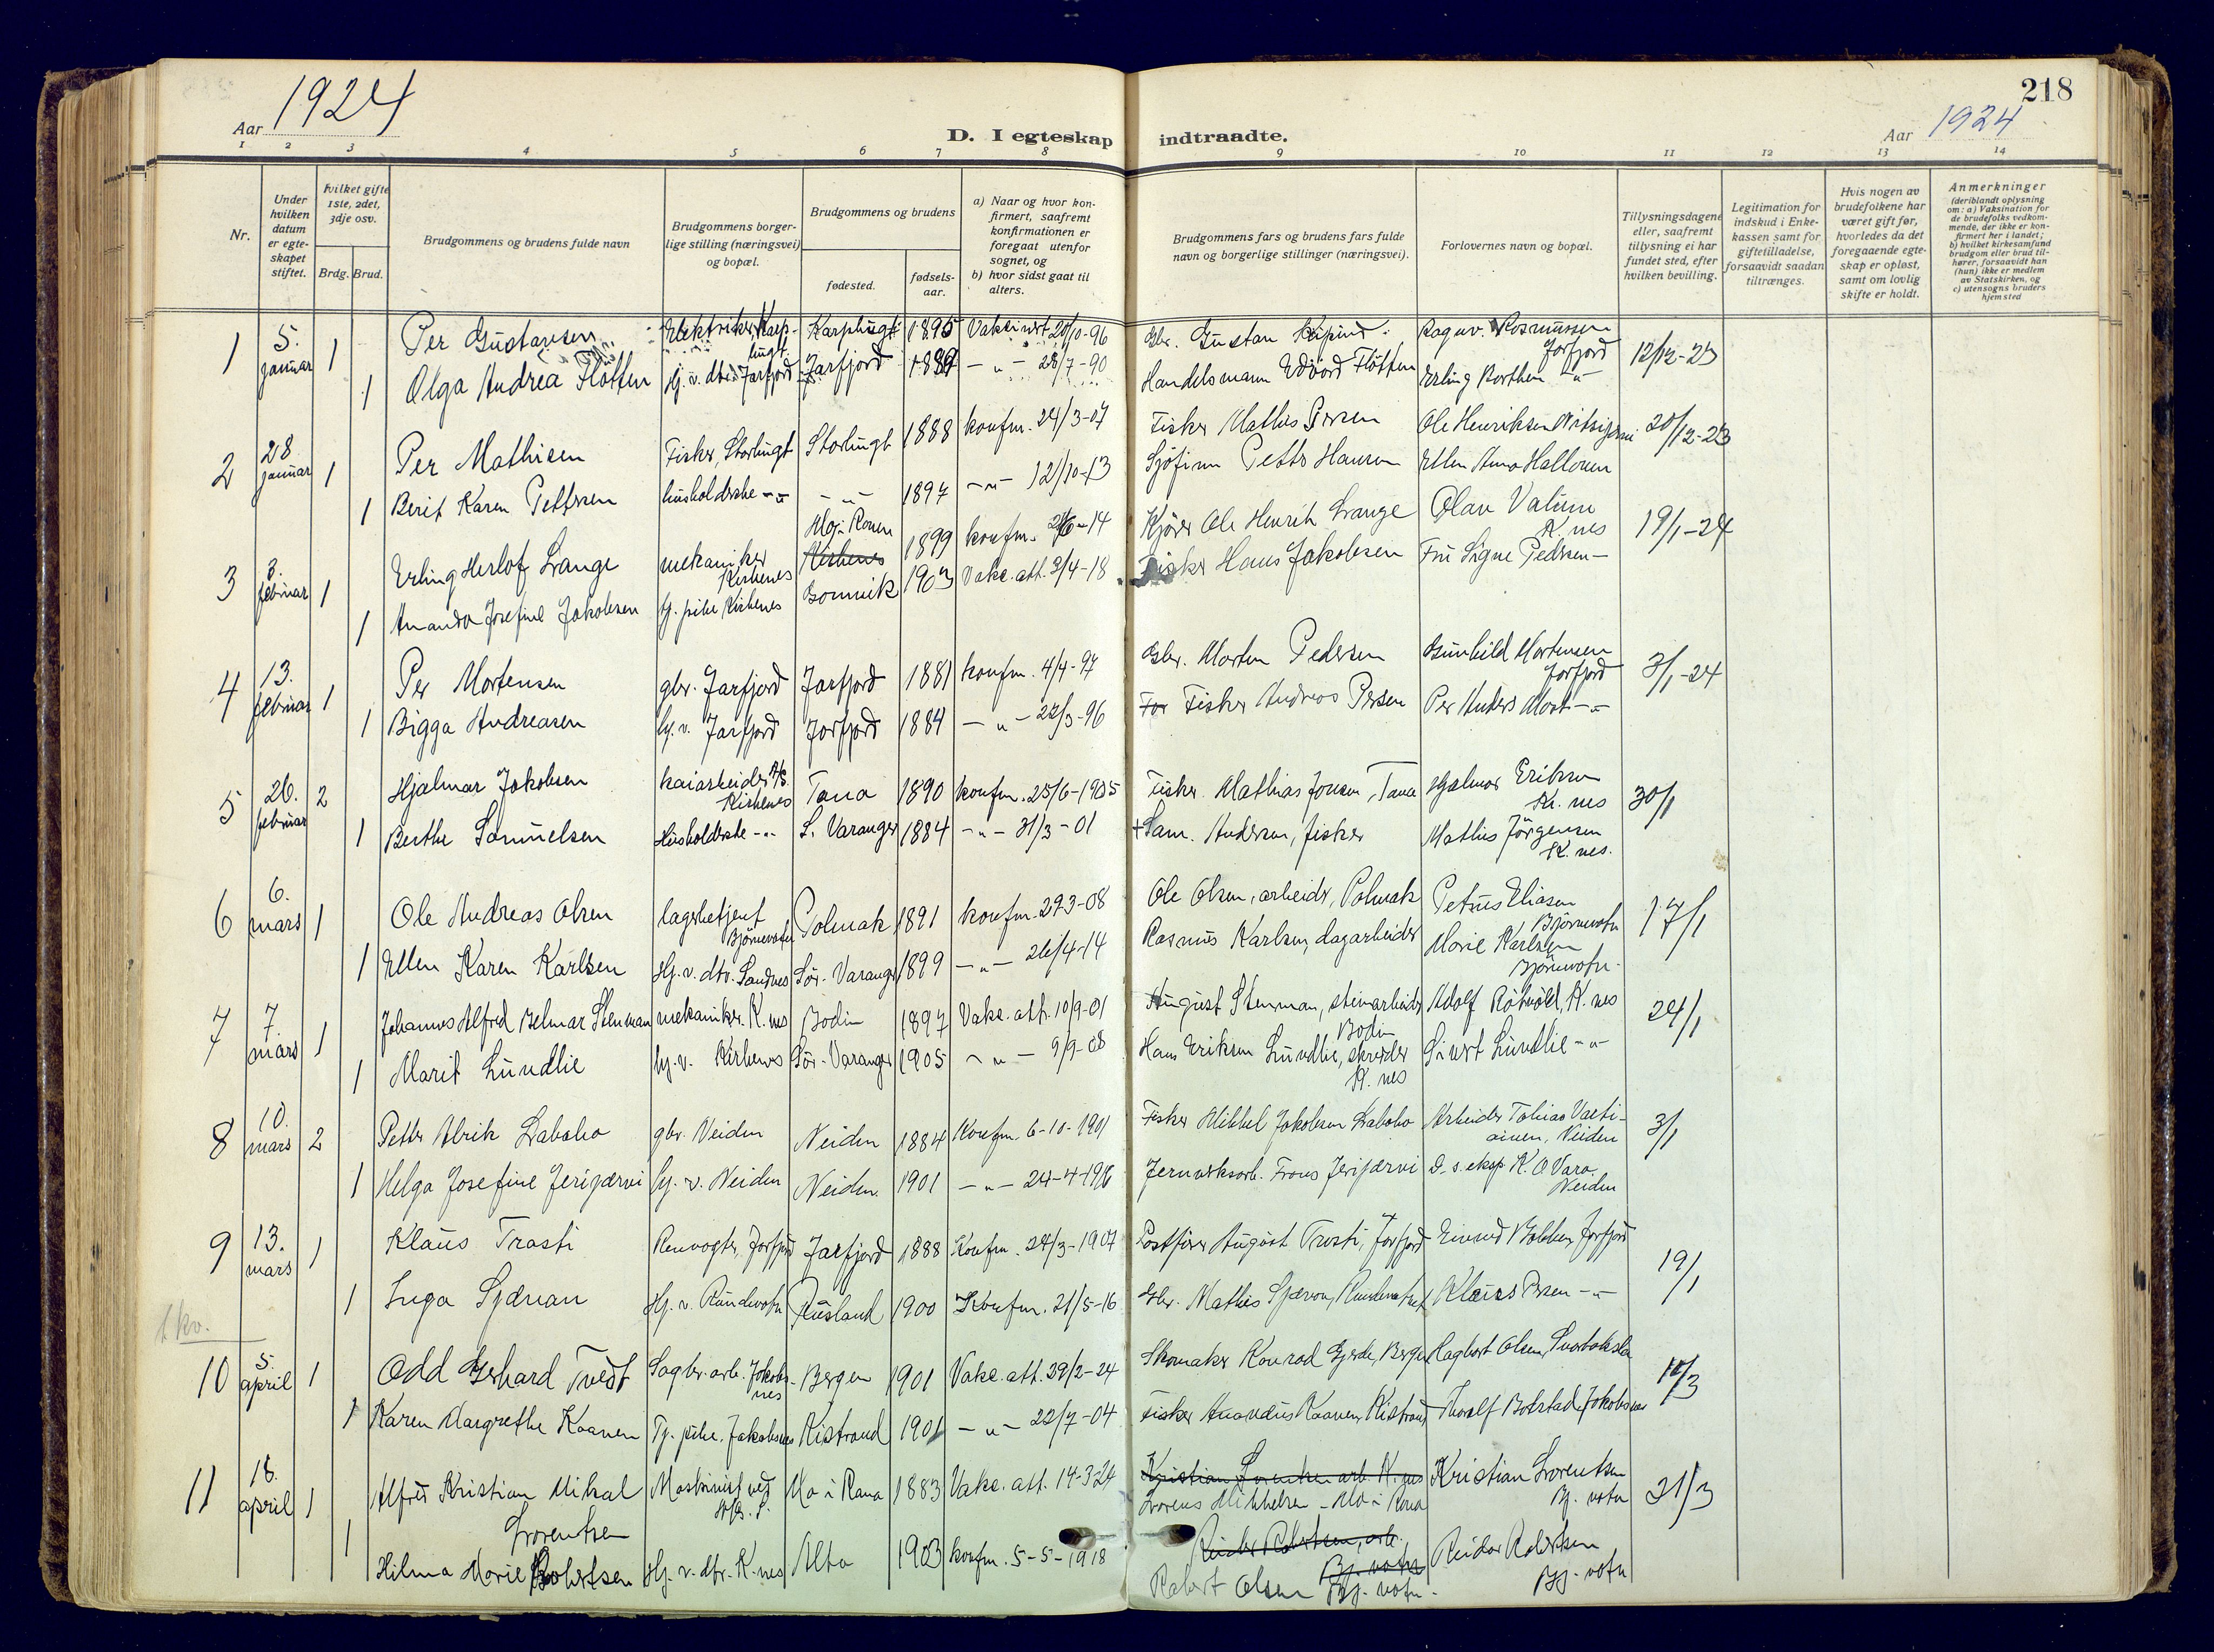 1924
Aar
D. I egteskap
indtraadte.
218
Aar 1924
1 2 3 4 5 6 7 8 9 10 11 12 13 14
Nr.
Under hvilken datum er egte-skapet stiftet.
Hvilket gifte 1ste, 2det, 3dje osv.
Brdg. Brud.
Brudgommens og brudens fulde navn
Brudgommens borger-lige stilling (næringsvei) og bopæl.
Brudgommens og brudens
fødested.
fødsels-aar.
a) Naar og hvor kon-firmert, saafremt konfirmationen er foregaat utenfor sognet, og
b) hvor sidst gaat til alters.
Brudgommens fars og brudens fars fulde navn og borgerlige stillinger (næringsvei).
Forlovernes navn og bopæl.
Tillysningsdagene eller, saafremt tillysning ei har fundet sted, efter hvilken bevilling.
Legitimation for indskud i Enke-kassen samt for giftetilladelse, forsaavidt saadan tiltrænges.
Hvis nogen av brudefolkene har været gift før, hvorledes da det foregaaende egte-skap er opløst, samt om lovlig skifte er holdt.
Anmerkninger (deriblandt oplysning om: a) Vaksination for de brudefolks vedkom-mende, der ikke er kon-firmert her i landet; b) hvilket kirkesamfund brudgom eller brud til-hører, forsaavidt han (hun) ikke er medlem av Statskirken, og c) utensogns bruders hjemsted
1 5. januar 1 Per Gustavsen Elektriker, Karp-bugt Karpbugt 1895 Vaksinert 20/10-96 Gbr. Gustav Ragnv. Rasmussen Jarfjord 12/12-23
1 Olga Andrea Fløtten Hj. v. dtr. Jarfjord Jarfjord 1889 -"- 28/7-90 Handelsmann Edvard Fløtten Erling Borthen -"-
2 28 januar 1 Per Mathisen Fisker, Storbugt Storbugt 1888 konfm. 24/3-07 Fisker Mathis Persen Ole Henriksen 20/12-23
1 Berit Karen Pettersen husholderske -"- -"- 1897 -"- 12/10-13 Sjøfinn Petter Hansen Ellen Anna Hallonen
3 3. februar 1 Erling Herlof Lrange mekaniker Kirkenes Kirkenes 1899 konfm. -14 Kjører Ole Henrik Lrange Olav Valum K.nes 19/1-24
1 Amanda Josefine Jakobsen tj. pike Kirkenes Bomvik 1903 Vakc. att. 3/4-18 Fisker Hans Jakobsen Fru Signe Pedersen -
4 13. februar 1 Per Mortensen gbr. Jarfjord Jarfjord 1881 konfm. 4/4-97 Gbr. Morten Pedersen Gunhild Mortensen Jarfjord 3/1-24
1 Bigga Andreasen hj. v. Jarfjord Jarfjord 1884 -"- 22/3-96 Far Fisker Andreas Persen Per Anders Mort -"-
5 26. februar 2 Hjalmar Jakobsen kaiarbeider A/S. Kirkenes Tana 1890 konfm. 25/6-1905 Fisker Mathias Jonsen, Tana Hjalmar Eriksen K.nes 30/1
1 Berthe Samuelsen Husholderske -"- S. Varanger 1884 -"- 31/3-01 +Sam. Andersen, fisker Mathis Jørgensen K.nes.
6 6. mars 1 Ole Andreas Olsen lagerbetjent Bjørnevatn Polmak 1891 konfm. 29-3-08 Ole Olsen, arbeider, Polmak Petrus Eliasen Bjørnevatn 17/1
1 Ellen Karen Karlsen Hj. v. dtr. Sandnes Sør-Varanger 1899 -"- 26/4-14 Rasmus Karlsen, dagarbeider Marie Karlsen Bjørnevatn.
7 7. mars 1 Johannes Alfred Belmar Stenman mekaniker. K.nes Bodin 1897 Vakc. att. 10/9-01 August Stenman, stenarbeider Bodin Adolf K.nes 24/1
1 Marit Lundlie hj. v. Kirkenes Sør-Varanger 1905 -"- 9/9-08 Hans Eriksen Lundlie, skredder K.nes Sivert Lundlie -"-
8 10. mars 2 Petter Ulrik Labaho gbr. Neiden Neiden 1884 Konfm. 6-10-1901 Fisker Mikkel Jakobsen Labaho Arbeider Tobias Vaeti-ainen, Neiden 3/1
1 Helga Josefine Jerijærvi hj. v. Neiden Neiden. 1901 -"- 24-4-1916 Jernverksarb. Frans Jerijærvi D. s. eksp. K. O Vara. Neiden
9 13. mars 1 Klaus Trasti Renvogter, Jarfjord Jarfjord 1888 Konfm. 24/3-1907 Postfører August Trasti, Jarfjord Eivind Jarfjord 19/1
1 Inga Sjæruan Hj. v. Rundvatn Rusland 1900 Konfm. 21/5-16 Gbr. Mathis Klaus Persen -"-
1 kv.
10 5. april 1 Odd Gerhard Tvedt Sagbr. arb. Jakobs-nes Bergen 1901 Vakc. att. 29/2-24 Skomaker Konrad Gjerde, Bergen Ragbert Olsen, Svartaksla 10/3
1 Karen Margrethe Kaaven Tj. pike. Jakobsnes Kistrand 1901 -"- 22/7-04 Fisker Amandus Kaaven, Kistrand Thoralf Bolstad, Jakobsnes
11 16. april 1 Alfred Kristian Mikal Lorentsen Maskinist ved Mo i Rana 1883 Vakc. att. 14-3-24 Kristian Lorentsen arb. K.nes Lorens Mikkelsen - Mo i Rana Kristian Lorentsen Bj. vatn 21/3
1 Hilma Marie Robertsen Hj. v. dtr. K.nes Alta 1903 konfm. 5-5-1918 Reidar Robertsen, arb. Bj. vatn Robert Olsen Bj. vatn. Reidar Robertsen Bj. vatn